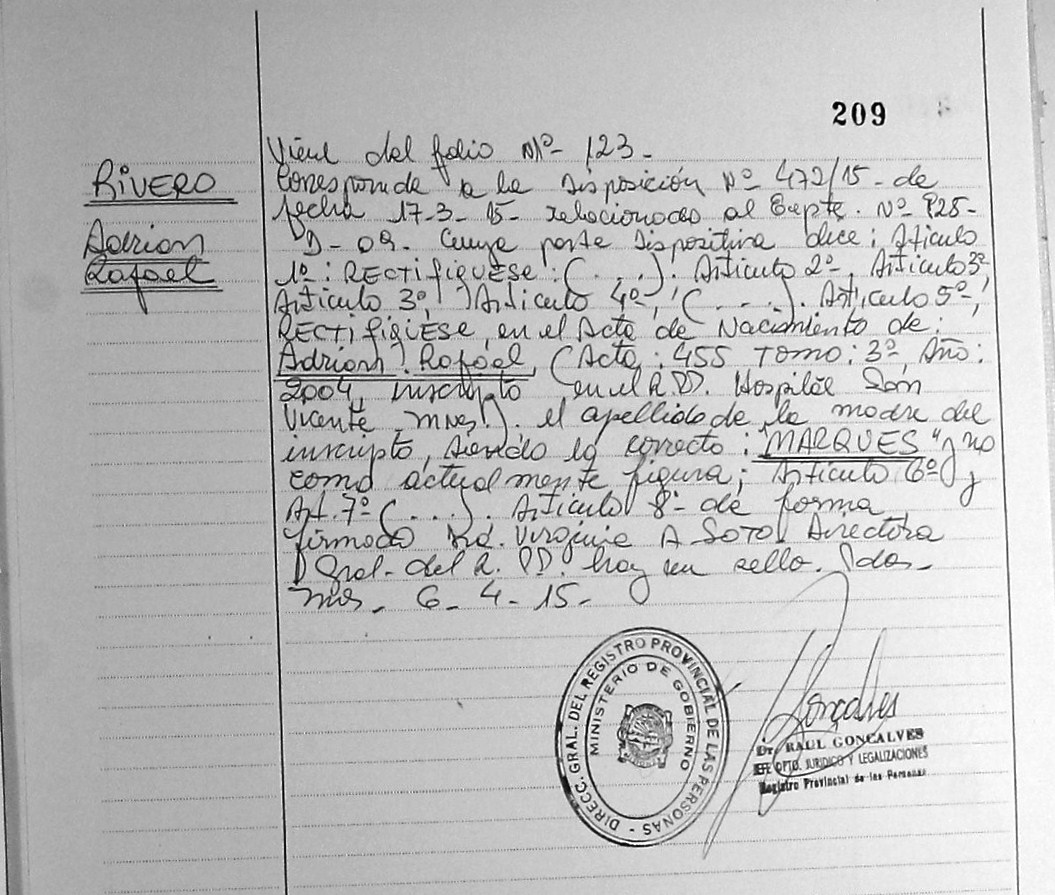 209
RIVERO
Adrian
Rafael
Viene del folio Nº 123-
Corresponde a la Disposición Nº 472/15- de
fecha 17-3-15- relacionado al Expte. Nº 925-
D-09- Cuya parte Dispositiva dice: Articulo
1º: RECTIFIQUESE: (....). Articulo 2º, Articulo 3º
Articulo 3º, Articulo 4º, (....). Articulo 5º,
RECTIFIQIESE, en el Acta de Nacimiento de:
Adrian Rafael (Acta: 455 TOMO: 3º Año:
2004, inscripto en el R.PP. Hospital San
Vicente Mnes). el apellido de la madre del
inscripto, siendo lo correcto: "MARQUES" y no
como actualmente figura; Articulo 6º y
Art. 7º (....). Articulo 8º de forma
firmado Virginia A SOTO Directora
Gral- del R.PP. hay un sello. Pdas-
Mnes- 6-4-15-
DIRECC. GRAL. DEL REGISTRO PROVINCIAL DE LAS PERSONAS -
MINISTERIO DE GOBIERNO
Gonçalves
Dr. RAUL GONCALVES
JEFE DPTO. JURIDICO Y LEGALIZACIONES
Registro Provincial de las Personas